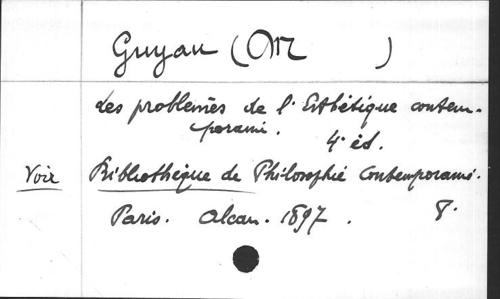 Guyau (M )
Les problèmes de l'Esthétique contem-
porami.
4e éd.
Voir Bibliothèque de Philosophie Contemporami.
Paris. Alcan. 1897. 8.